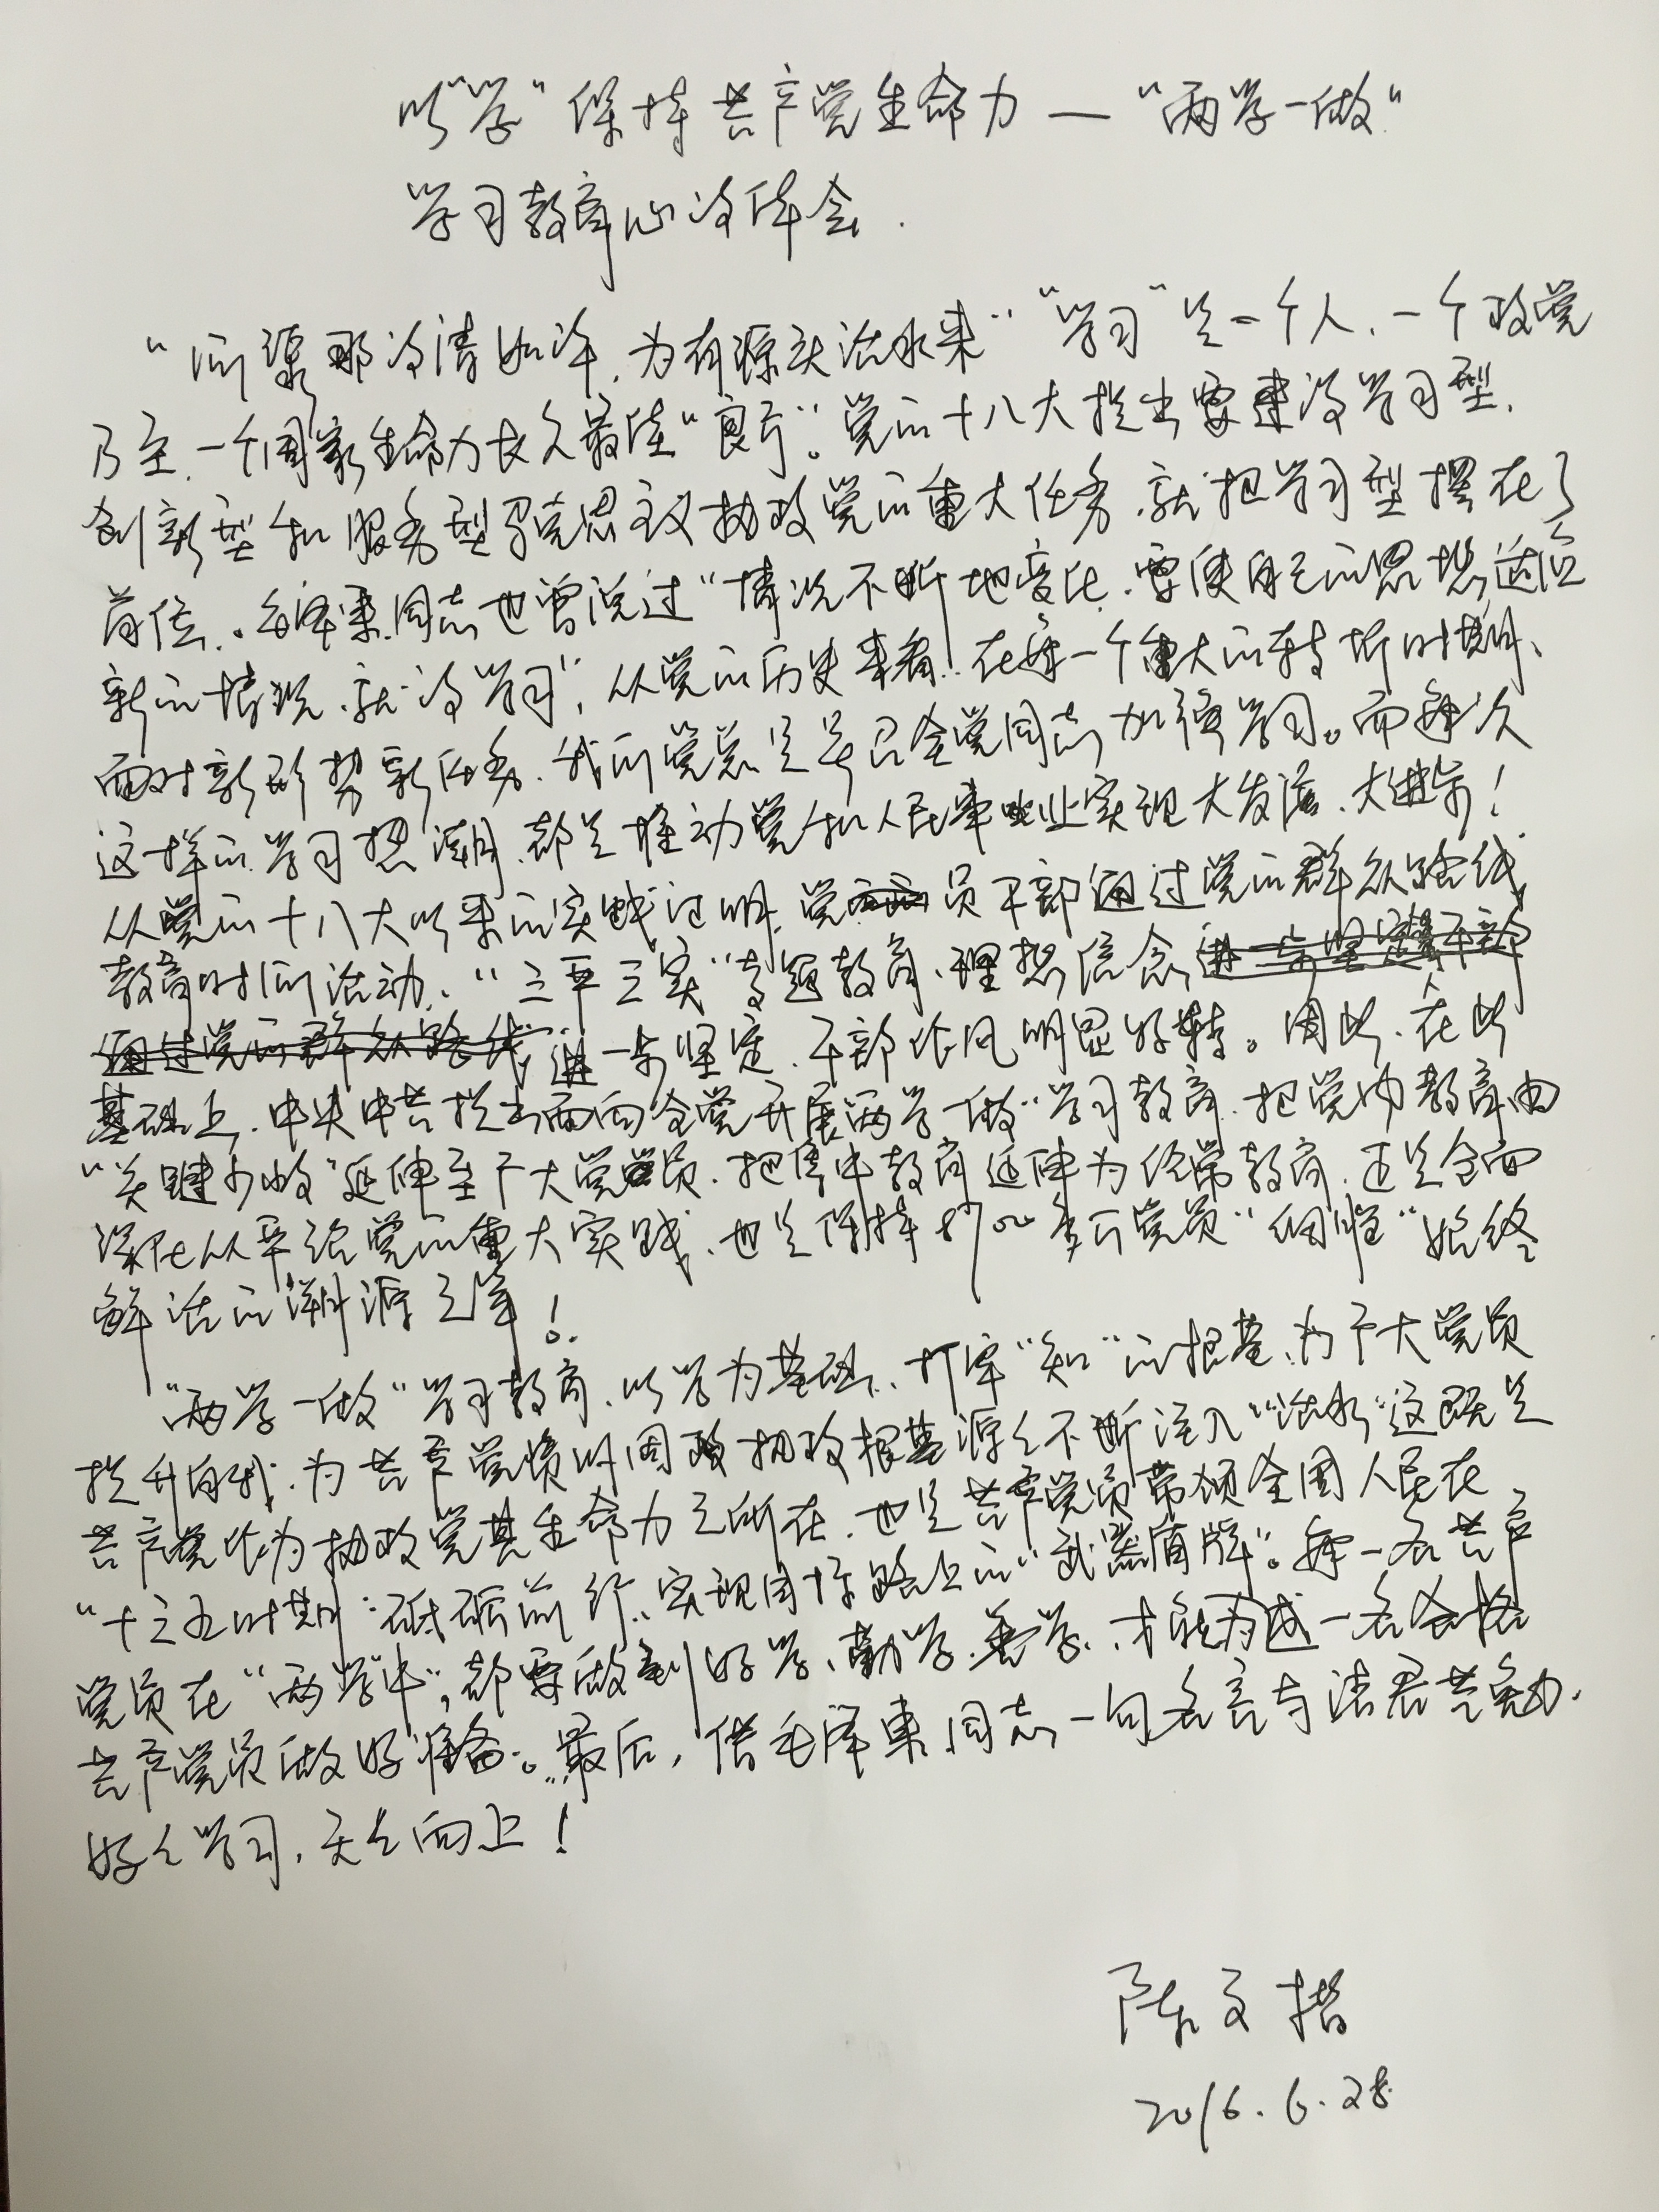 以“学”保持共产党生命力—“两学一做”
学习教育心得体会.
“问渠那得清如许,为有源头活水来”“学习”是一个人、一个政党
乃至一个国家生命力长久最佳“良方”。党的十八大提出要建设学习型、
创新型和服务型马克思主义执政党的重大任务,就把学习型摆在了
首位。毛泽东同志也曾说过“情况不断地变化,要使自己的思想适应
新的情况,就得学习”,从党的历史来看,在每一个重大的转折时期、
面对新形势新任务,我们党总是号召全党同志加强学习。而每次
这样的学习热潮,都是推动党和人民事业实现大发展、大进步!
从党的十八大以来的实践证明,党员干部通过党的群众路线
教育时间活动、“三严三实”专题教育,理想信念
进一步坚定,干部作风明显好转。因此,在此
基础上,中央中共提出面向全党开展两学一做”学习教育,把党内教育由
“关键少数”延伸至广大党员,把集中教育延伸为经常教育,正是全面
深化从严治党的重大实践,也是保持8700多万党员“细胞”始终
鲜活的溯源之举!
“两学一做”学习教育,以学为基础,打牢“知”的根基,为广大党员
提升自我,为共产党员巩固政执政根基源源不断注入“活水”这既是
共产党作为执政党其生命力之所在,也是共产党员带领全国人民在
“十三五时期”砥砺前行、实现中国路上的“武器盾牌”。每一名共产
党员在“两学中”,都要做到好学、勤学、善学,才能为成一名合格
共产党员做好准备。最后,借毛泽东同志一句名言与诸君共勉.
好好学习,天天向上!
陈文楷
2016.6.28